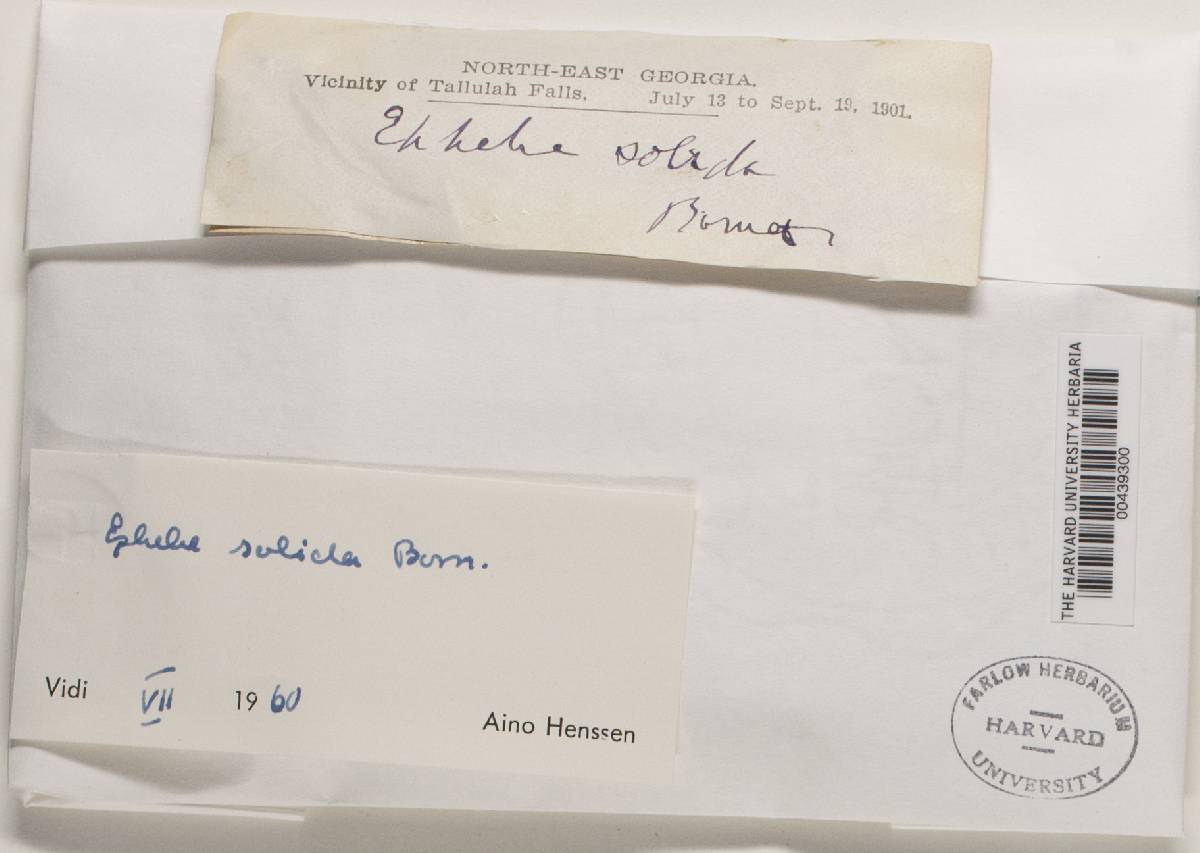 NORTH-EAST GEORGIA.
Vicinity of Tallulah Falls, July 13 to Sept. 19, 1901.
Ephebe solida
Bornet
THE HARVARD UNIVERSITY HERBARIA
00439300
Ephebe solida Born.
Vidi VII 1960
Aino Henssen
FARLOW HERBARIUM
HARVARD
UNIVERSITY